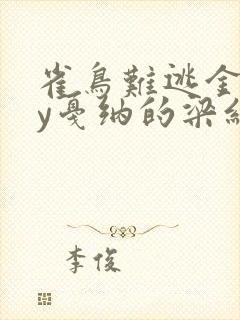 雀鳥難逃金
y戛纳的梁
李俊